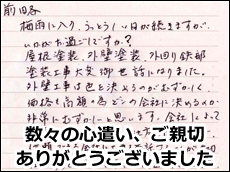 前田各
梅雨に入り、うっとうしい日が続きますが、
いかがお過ごしですか？
屋根塗装、外壁塗装、外回り鉄部
塗装工事大変御世話になりました。
外壁工事は色を決めるのがむずかしく
価格も高額の為どこの会社に決めるのか
非常にむずかしいと思います。会社によって
数々の心遣い、ご親切
ありがとうございました